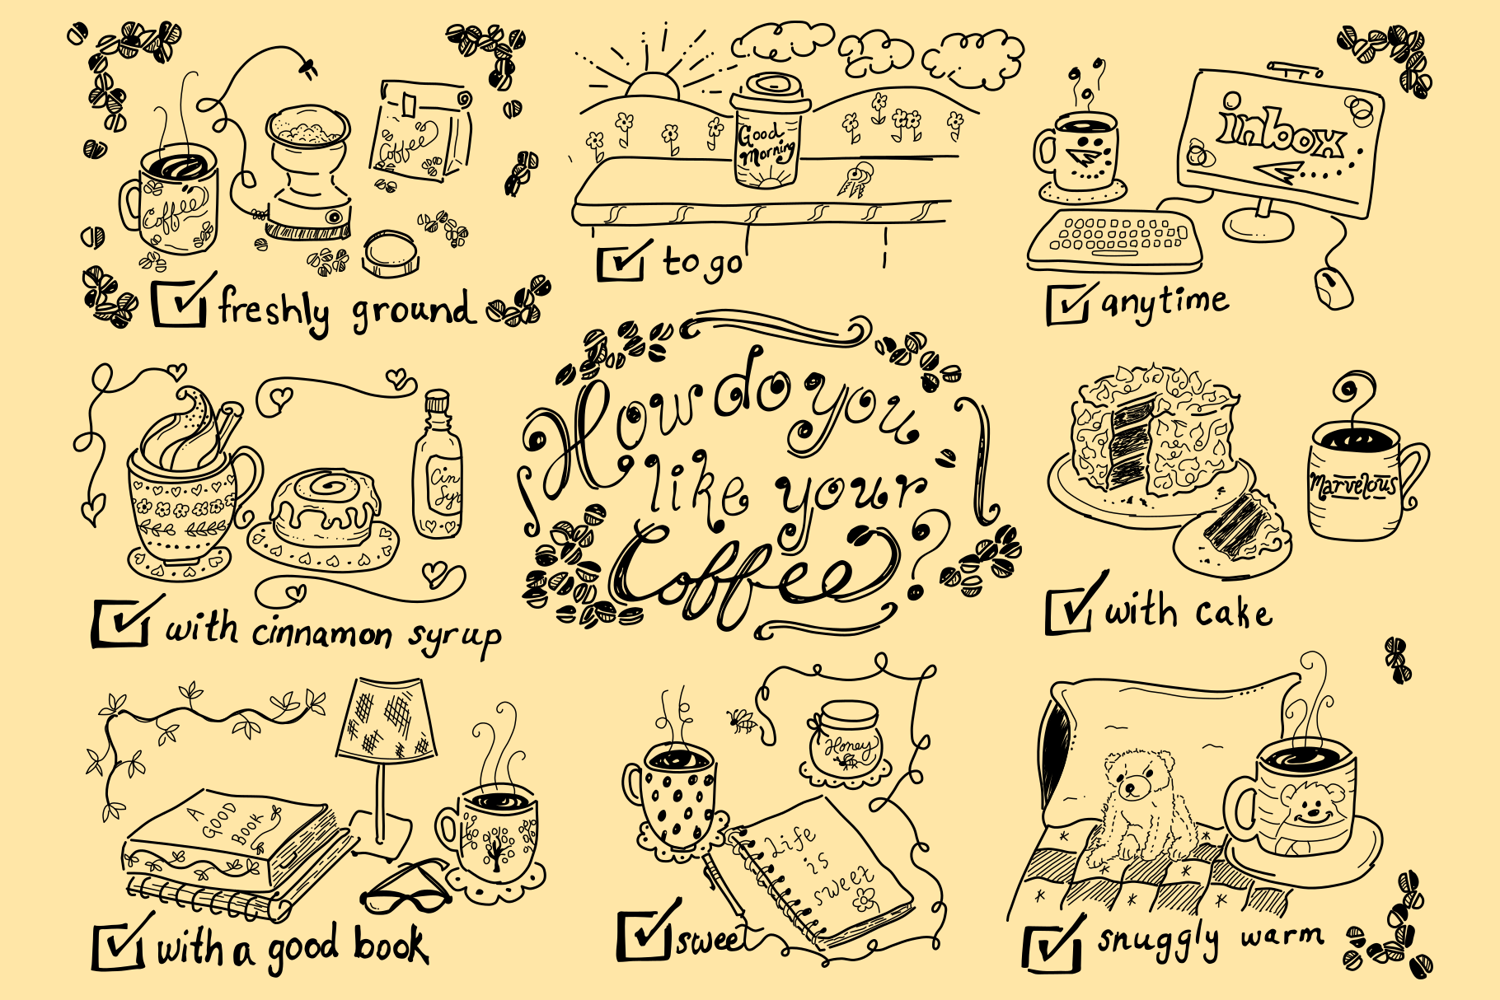 Coffee
Coffee
freshly ground
Good
Morning
to go
inbox
anytime
Cin
Syr
with cinnamon syrup
How do you
like your
Coffee?
Marvelous
with cake
A
GOOD
BOOK
with a good book
Honey
Life
is
sweet
sweet
snuggly warm